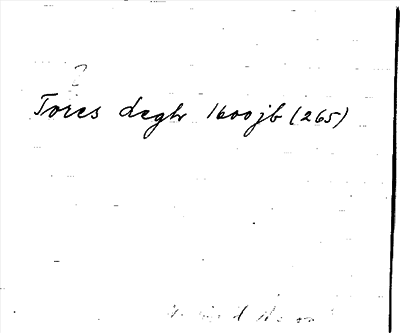 ?
Tores degtr 1600jb (265)